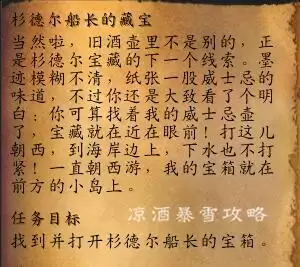 杉德尔船长的藏宝
当然啦，旧酒壶里不是别的，正
是杉德尔宝藏的下一个线索。墨
迹模糊不清，纸张一股威士忌的
味道，不过你还是大致看了个明
白：你可算找着我的威士忌壶
了，宝藏就在近在眼前！打这儿
朝西，到海岸边上，下水也不打
紧！一直朝西游，我的宝箱就在
前方的小岛上。
任务目标
凉酒暴雪攻略
找到并打开杉德尔船长的宝箱。